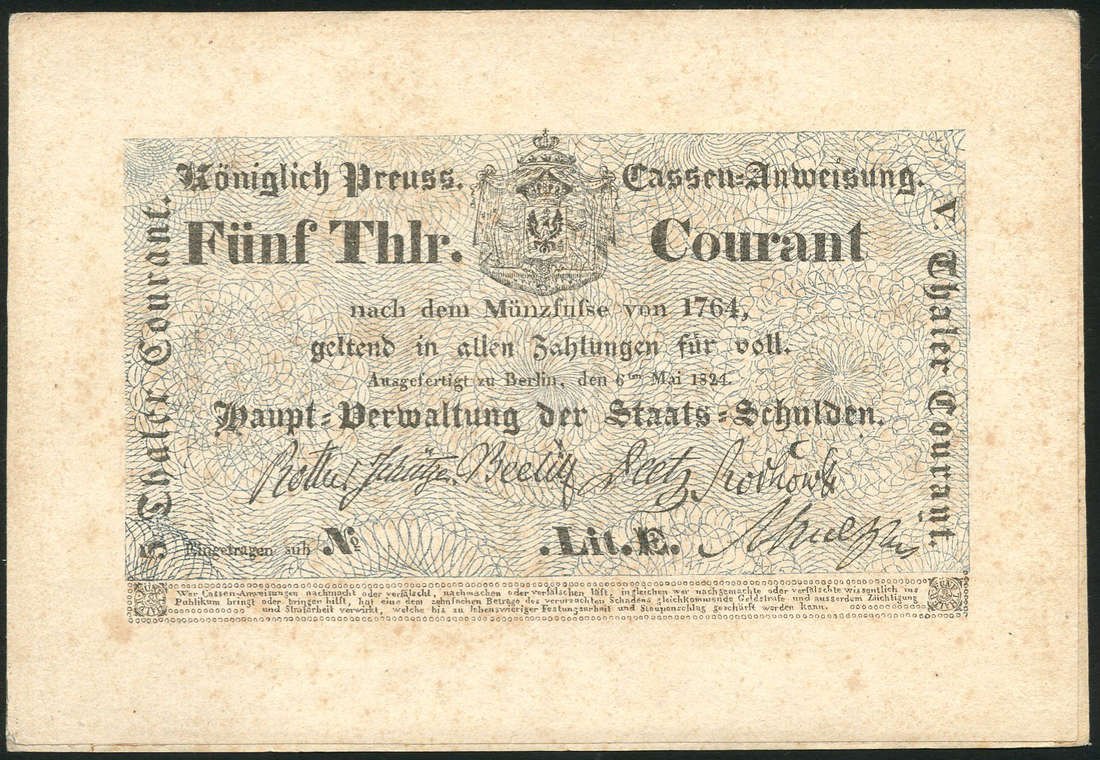 Königlich Preuss. Cassen=Anweisung.
Fünf Thlr. Courant
nach dem Münzfuſse von 1764,
geltend in allen Zahlungen für voll.
Ausgefertigt zu Berlin, den 6ten Mai 1824.
Haupt=Verwaltung der Staats=Schulden.
Rother Schütze Beelitz Deetz Rochow
Eingetragen sub No. .Lit.E.
5 Thaler Courant.
V. Thaler Courant.
Wer Cassen-Anweisungen nachmacht oder verfälscht, nachmachen oder verfälschen läſst, ingleichen wer nachgemachte oder verfälschte wissentlich ins
Publikum bringt oder bringen hilft, hat eine dem zehnfachen Betrage des verursachten Schadens gleichkommende Geldstrafe und ausserdem Züchtigung
und Strafarbeit verwirkt, welche bis zu lebenswieriger Festungsarbeit und Staupenschlag geschärft werden kann.